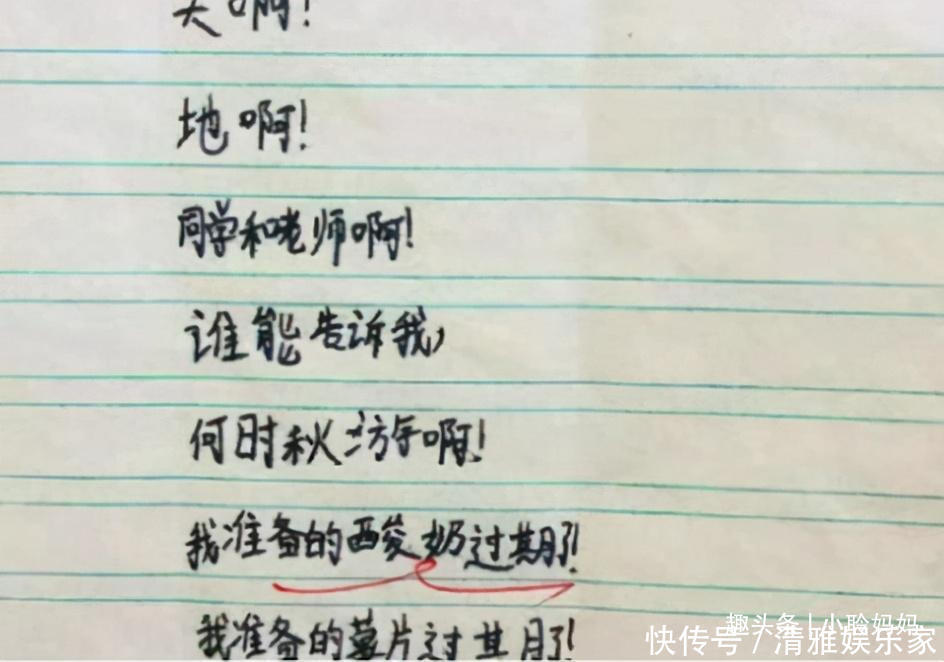 天啊!
地啊!
同学和老师啊!
谁能告诉我,
何时秋游啊!
我准备的酸奶过期了!
我准备的薯片过期了!
趣头条|小聆妈妈
快传号/清雅娱乐家